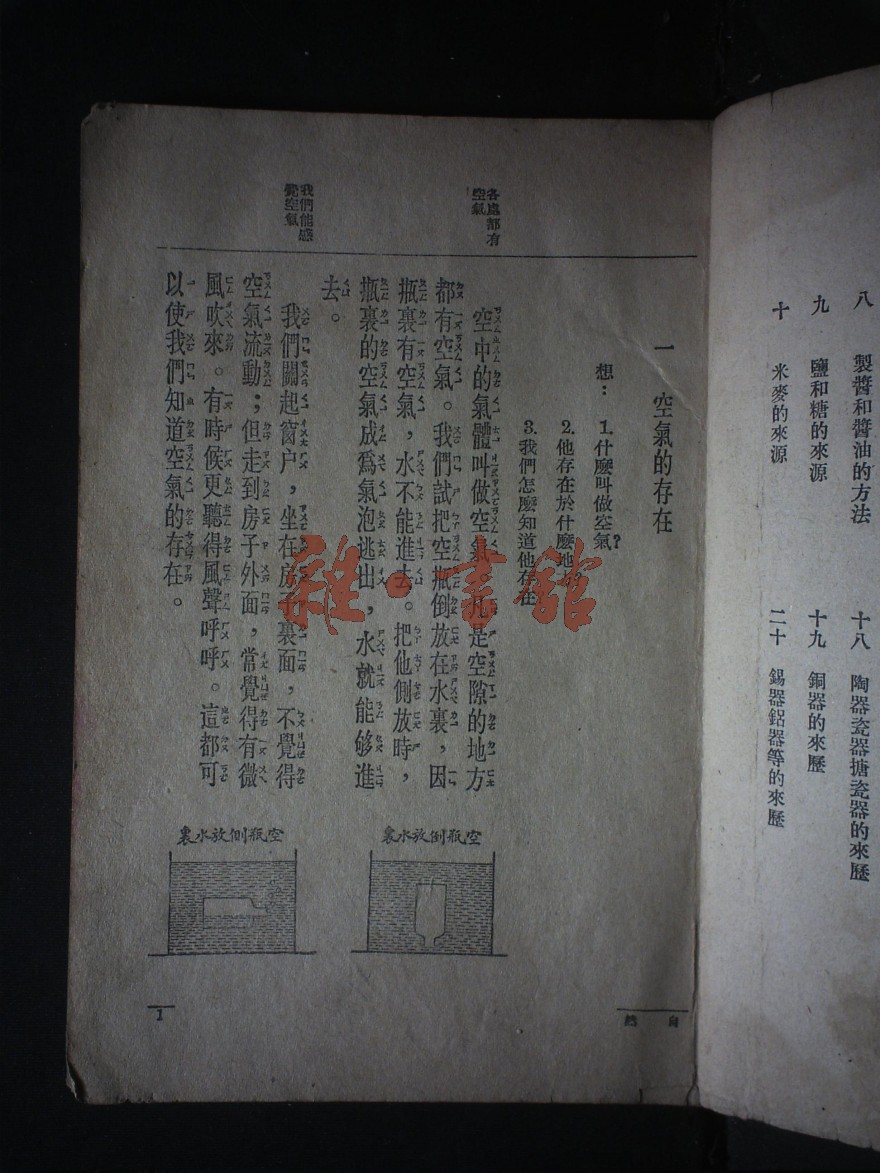 八　製醬和醬油的方法
十八　陶器瓷器搪瓷器的來歷
九　鹽和糖的來源
十九　銅器的來歷
十　米麥的來源
二十　錫器鋁器等的來歷
一　空氣的存在
想：1.什麼叫做空氣？
2.他存在於什麼地
3.我們怎麼知道他存在
各處都有
空氣
空中的氣體叫做空氣。凡是空隙的地方
都有空氣。我們試把空瓶倒放在水裏，因
瓶裏有空氣，水不能進去。把他側放時，
瓶裏的空氣成爲氣泡逃出，水就能够進
去。
我們能感
覺空氣
我們關起窗户，坐在房子裏面，不覺得
空氣流動；但走到房子外面，常覺得有微
風吹來。有時候更聽得風聲呼呼。這都可
以使我們知道空氣的存在。
空瓶倒放水裏
空瓶側放水裏
自然
1
雜·書館